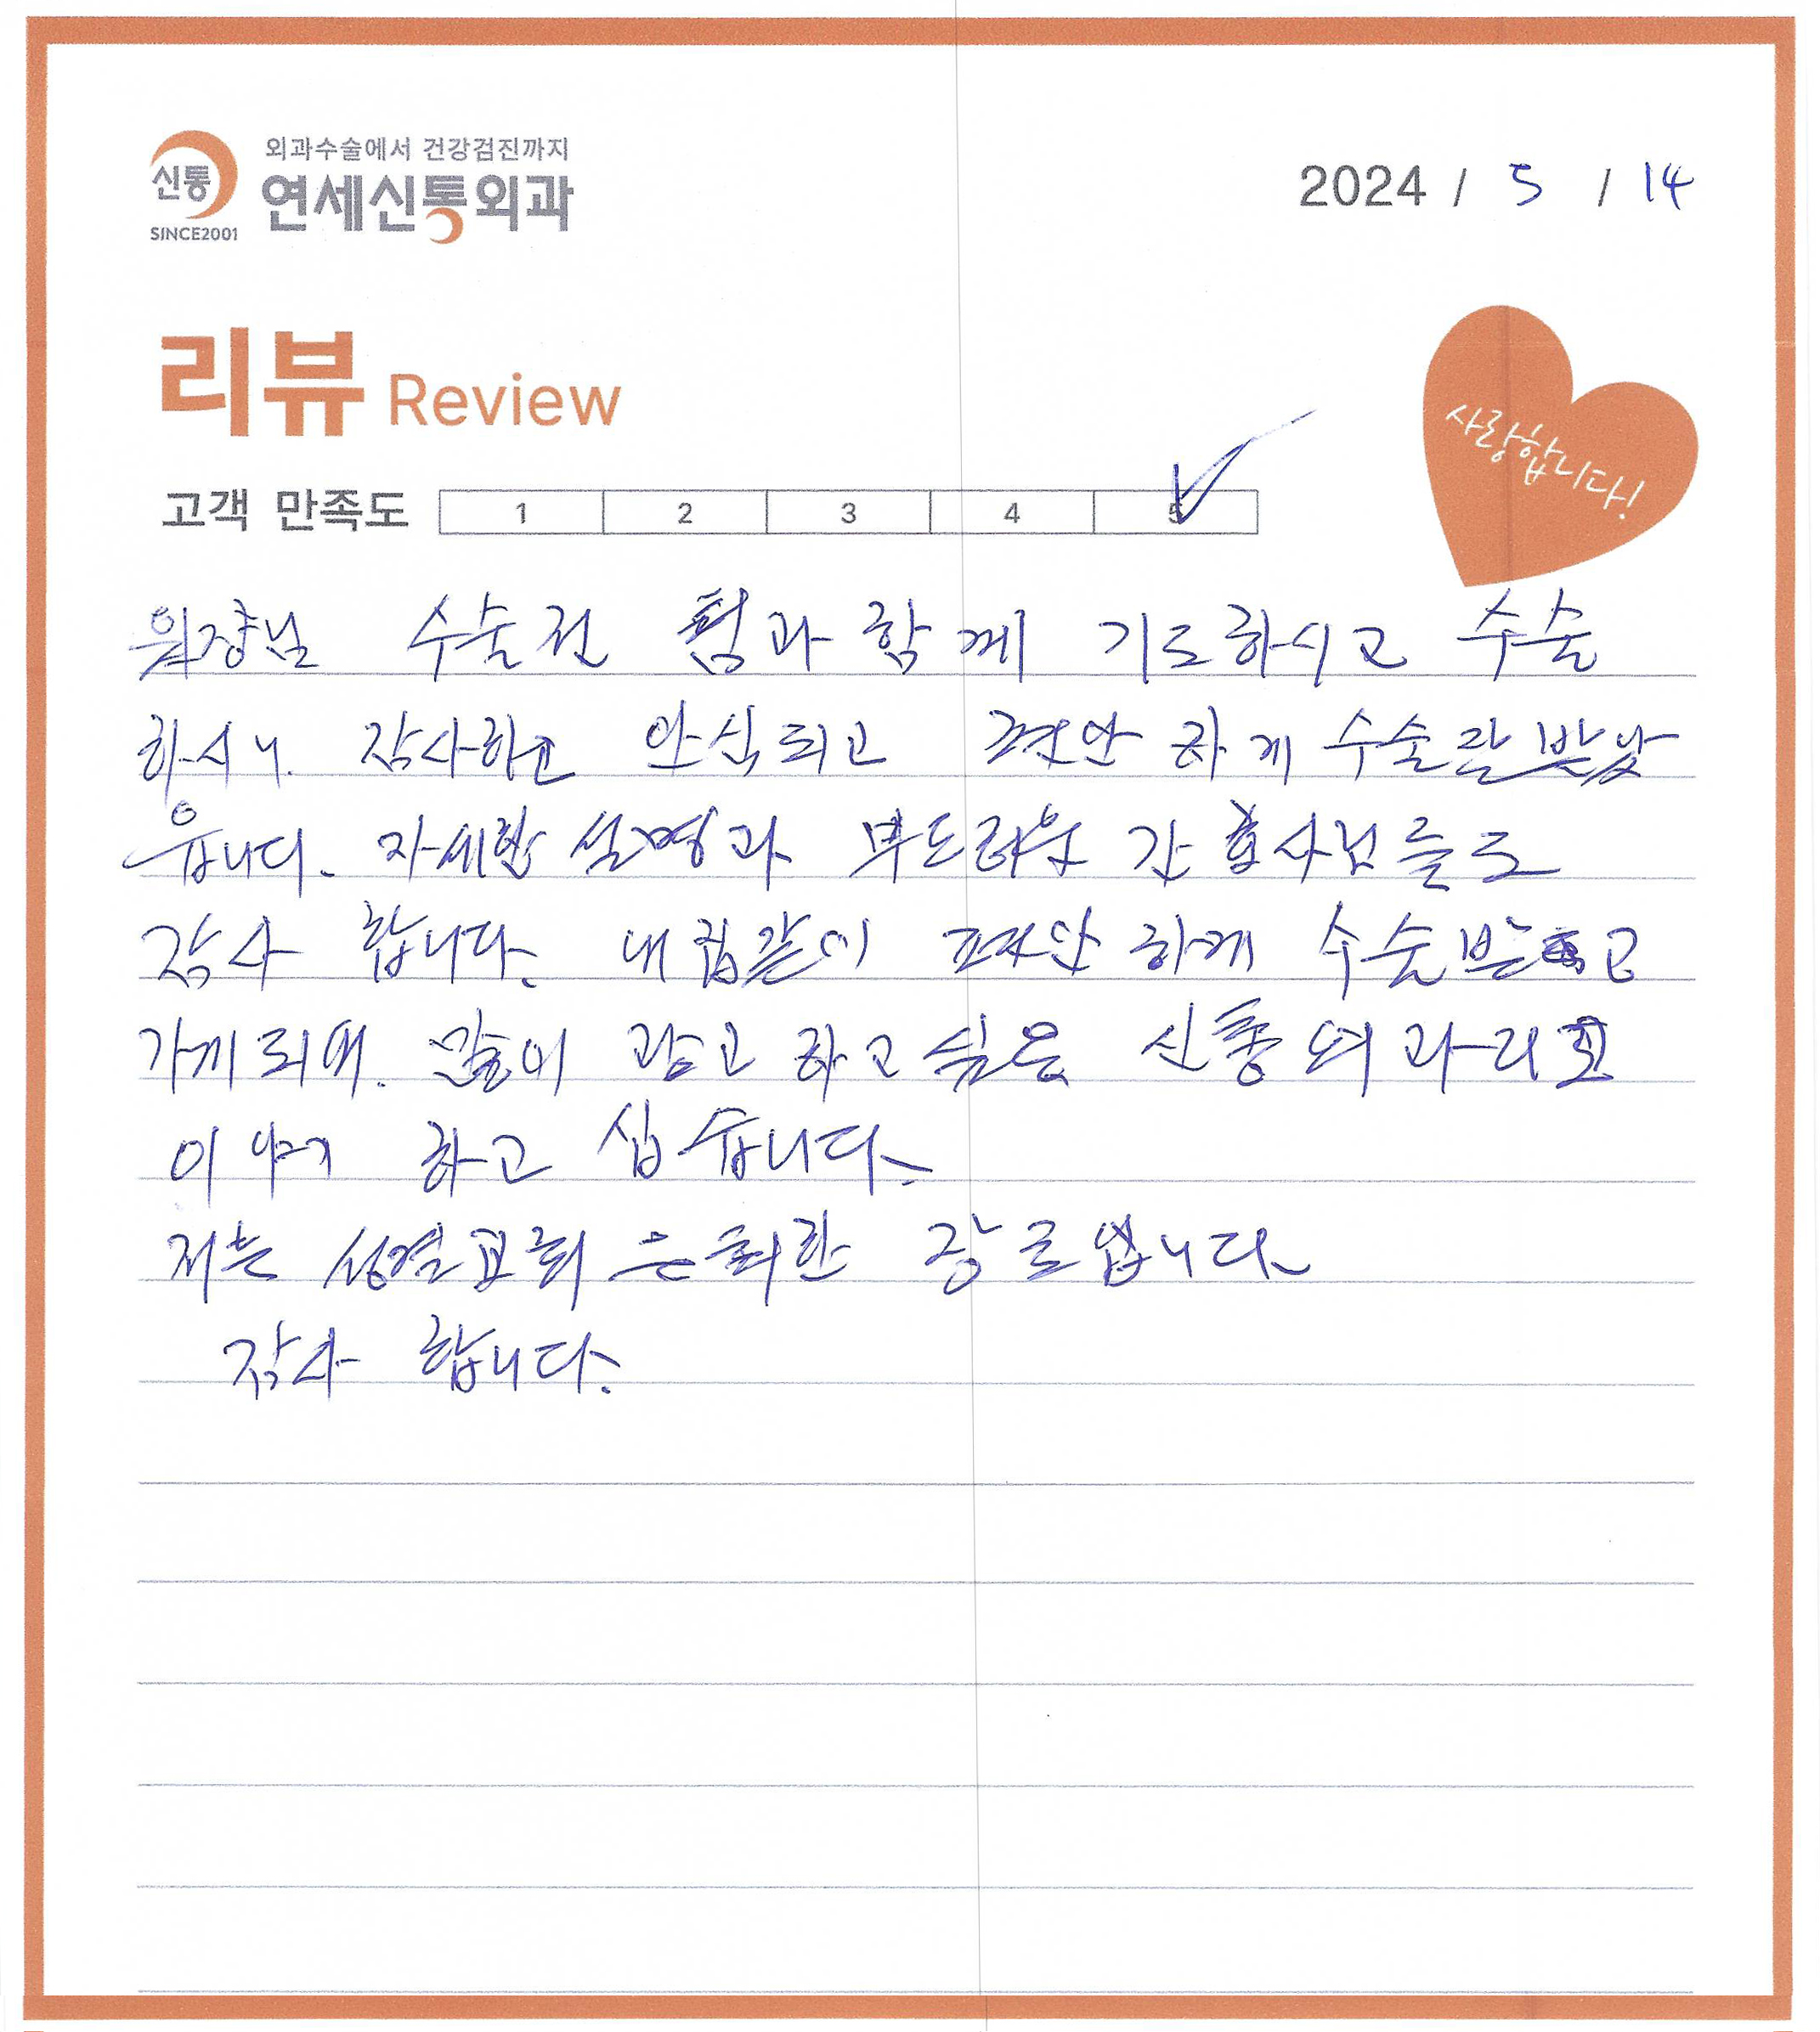 외과수술에서 건강검진까지
신통
연세신통외과
SINCE2001
2024 / 5 / 14
리뷰 Review
사랑합니다!
고객 만족도 1 2 3 4 5
원장님 수술전 팀과 함께 기도하시고 수술
하시니. 감사하고 안심되고 편안하게 수술잘받았
읍니다. 자세한 설명과 부드러운 간호사님들도
감사 합니다. 내집같이 편안하게 수술받고
가게되어. 많이 하고싶은 신통외과라고
이야기 하고 십습니다.
저는 성결교회 은퇴한 장로입니다.
감사 합니다.